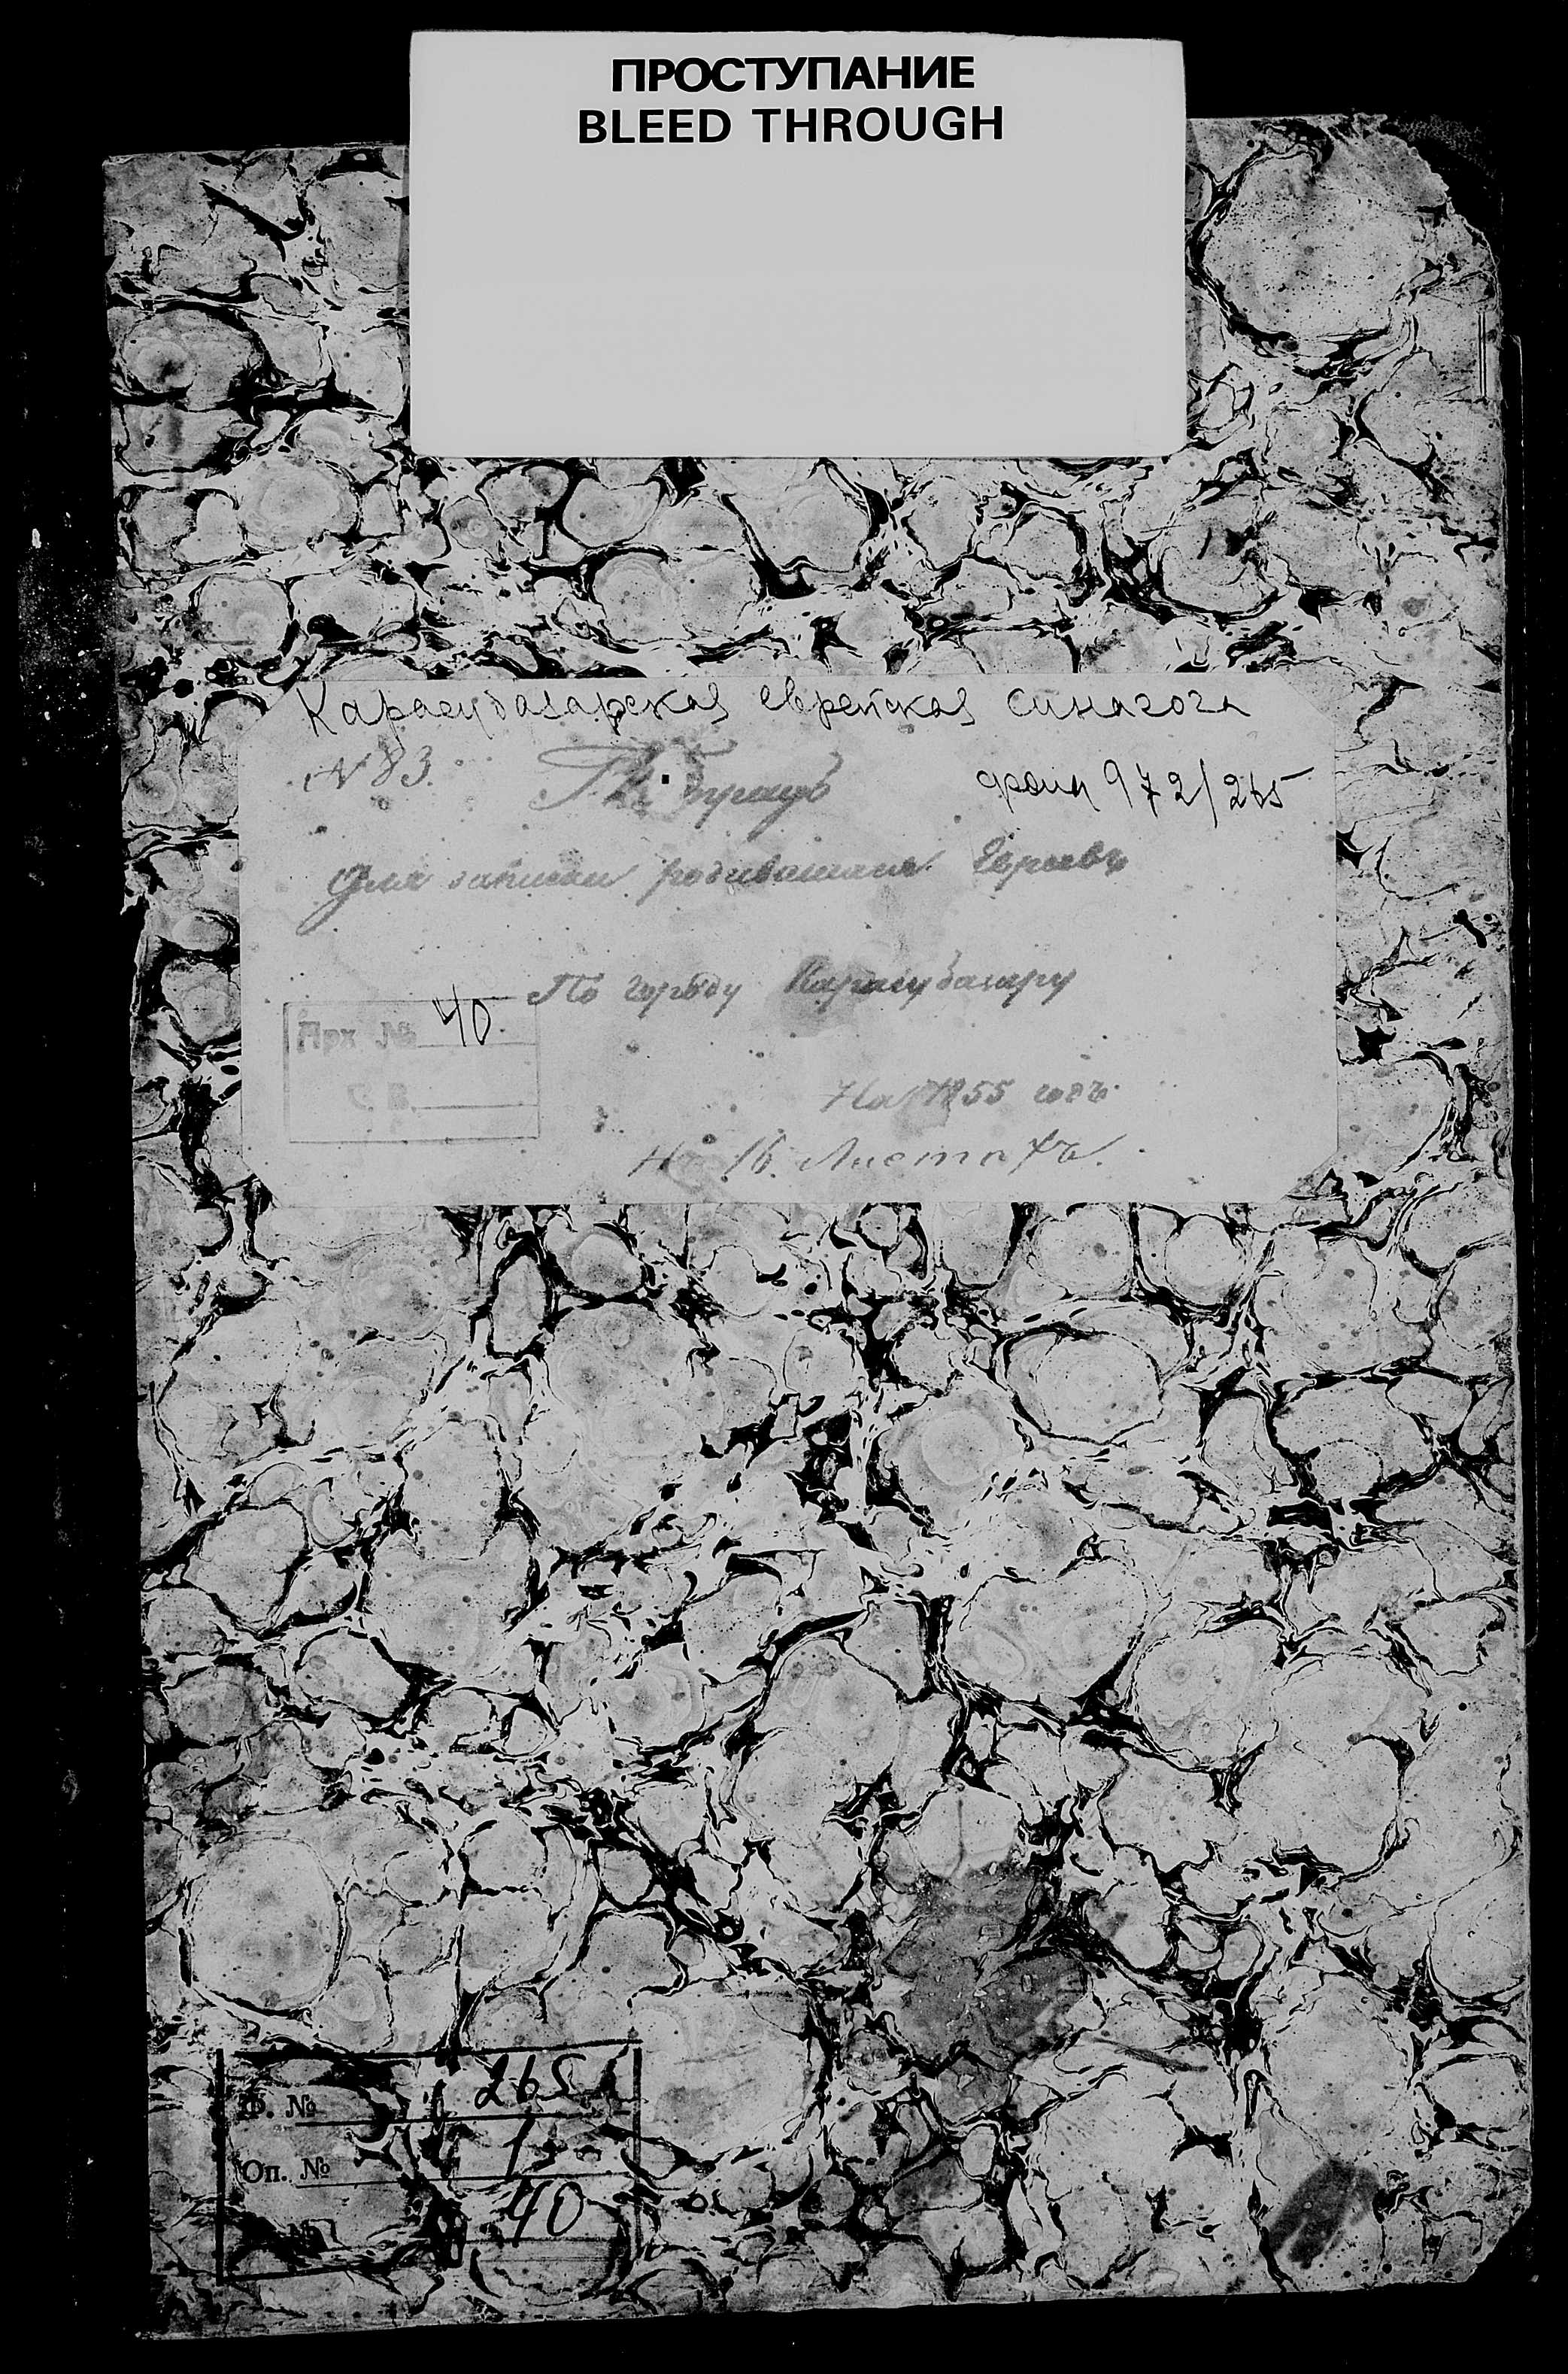 ПРОСТУПАНИЕ
BLEED THROUGH
Карасубазарская еврейская синагога
№ 83.
фонд 972/265
Для записки родившихся Евреевъ
По городу Карасубазару
Арх № 40
С. В.
На 1855 годъ
На 16 Листахъ.
Ф. № 265
Оп. № 1
№ 40